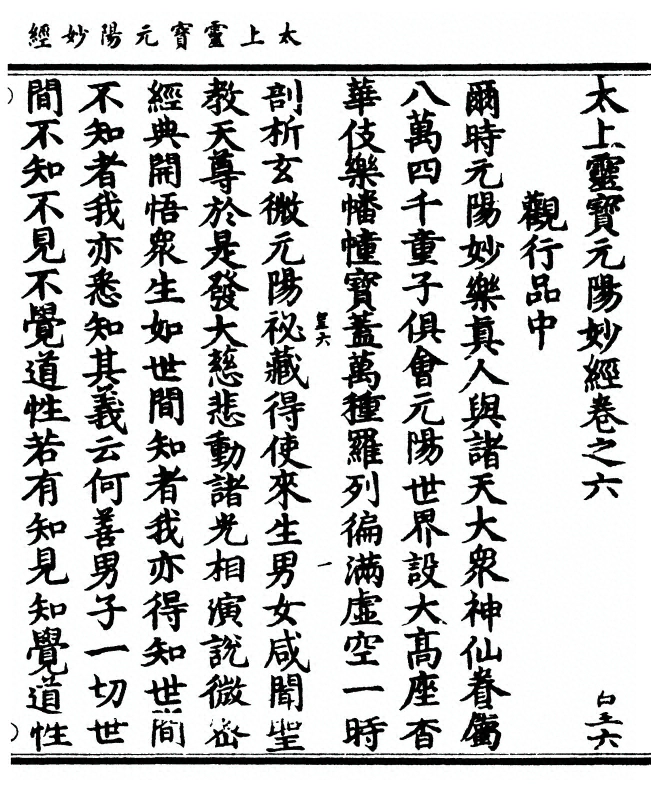 太上靈寳元陽妙經
太上靈寳元陽妙經卷之六
觀行品中
爾時元陽妙樂真人與諸天大衆神仙眷屬
八萬四千童子俱會元陽世界設大髙座香
華伎樂幡幢寳蓋萬種羅列徧滿虚空一時
剖析玄微元陽祕藏得使來生男女咸聞聖
教天尊於是發大慈悲動諸光相演說微密
經典開悟衆生如世間知者我亦得知世間
不知者我亦悉知其義云何善男子一切世
間不知不見不覺道性若有知見知覺道性